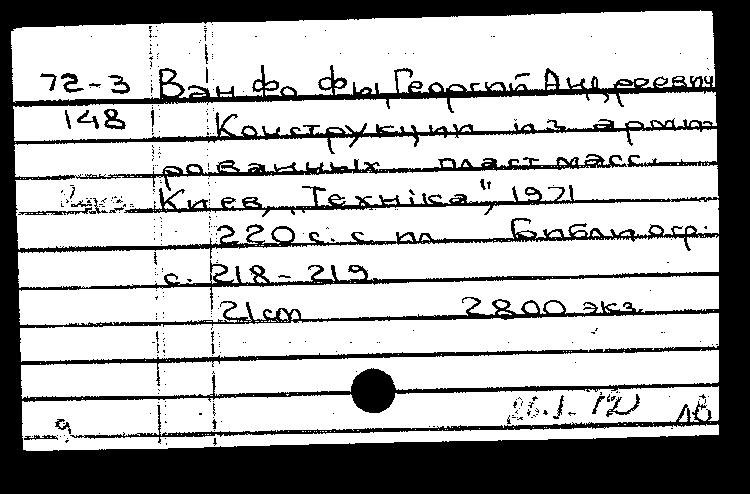 72-3 Ван Фо Фы Георгий Андреевич
148 Конструкции из арми-
рованных пластмасс.
Киев, "Техніка", 1971
220 с. с ил. Библиогр:
с. 218-219
21 cm 2800 экз.
26.I-72 ЛВ
9